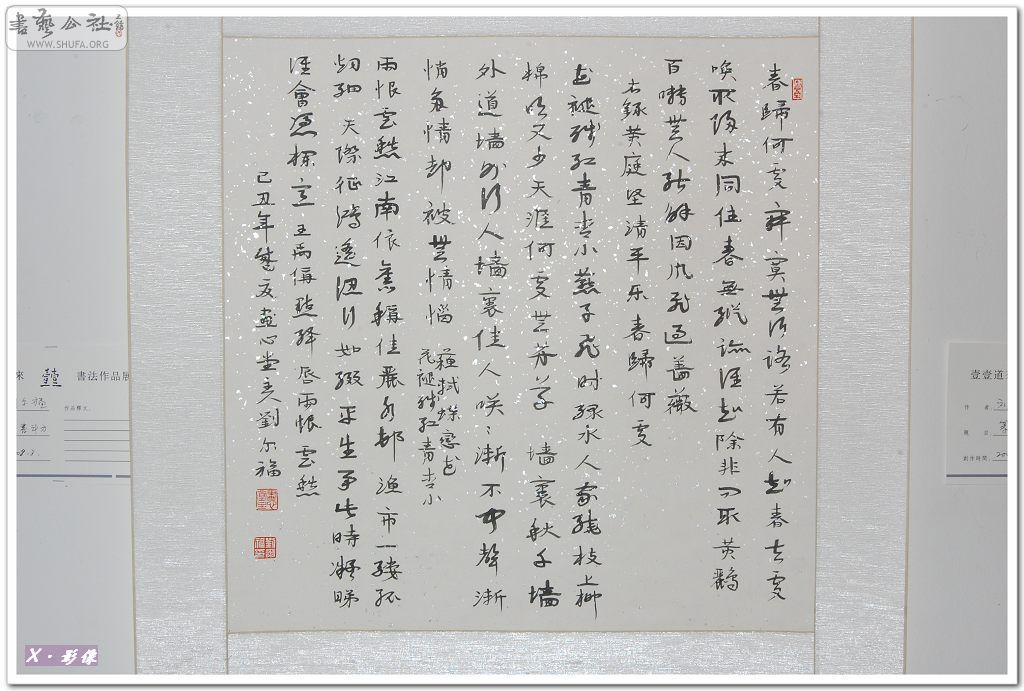 書藝公社
WWW.SHUFA.ORG
春歸何處寂寞無行路若有人知春去處
喚取歸來同住春無蹤跡誰知除非問取黄鸝
百囀無人能解因风飛過薔薇
右録黄庭坚清平乐春歸何處
花褪残红青杏小燕子飛时绿水人家绕枝上柳
棉吹又少天涯何處芳草墙裏秋千墙
外道墙外行人墙裏佳人咲〻漸不闻聲漸
悄多情却被無情惱蘇軾蝶恋花
花褪残红青杏小
雨恨雲愁江南依舊稱佳麗水邨漁市一縷孤
烟细天際征鴻遥認行如綴平生事此時凝睇
誰會憑欄意王禹偁點绛唇雨恨雲愁
己丑年夏心堂主劉尔福
來 壹壹 書法作品展
作品釋文:
壹壹道
作 者:
題 目:
創作時間:
X·影像